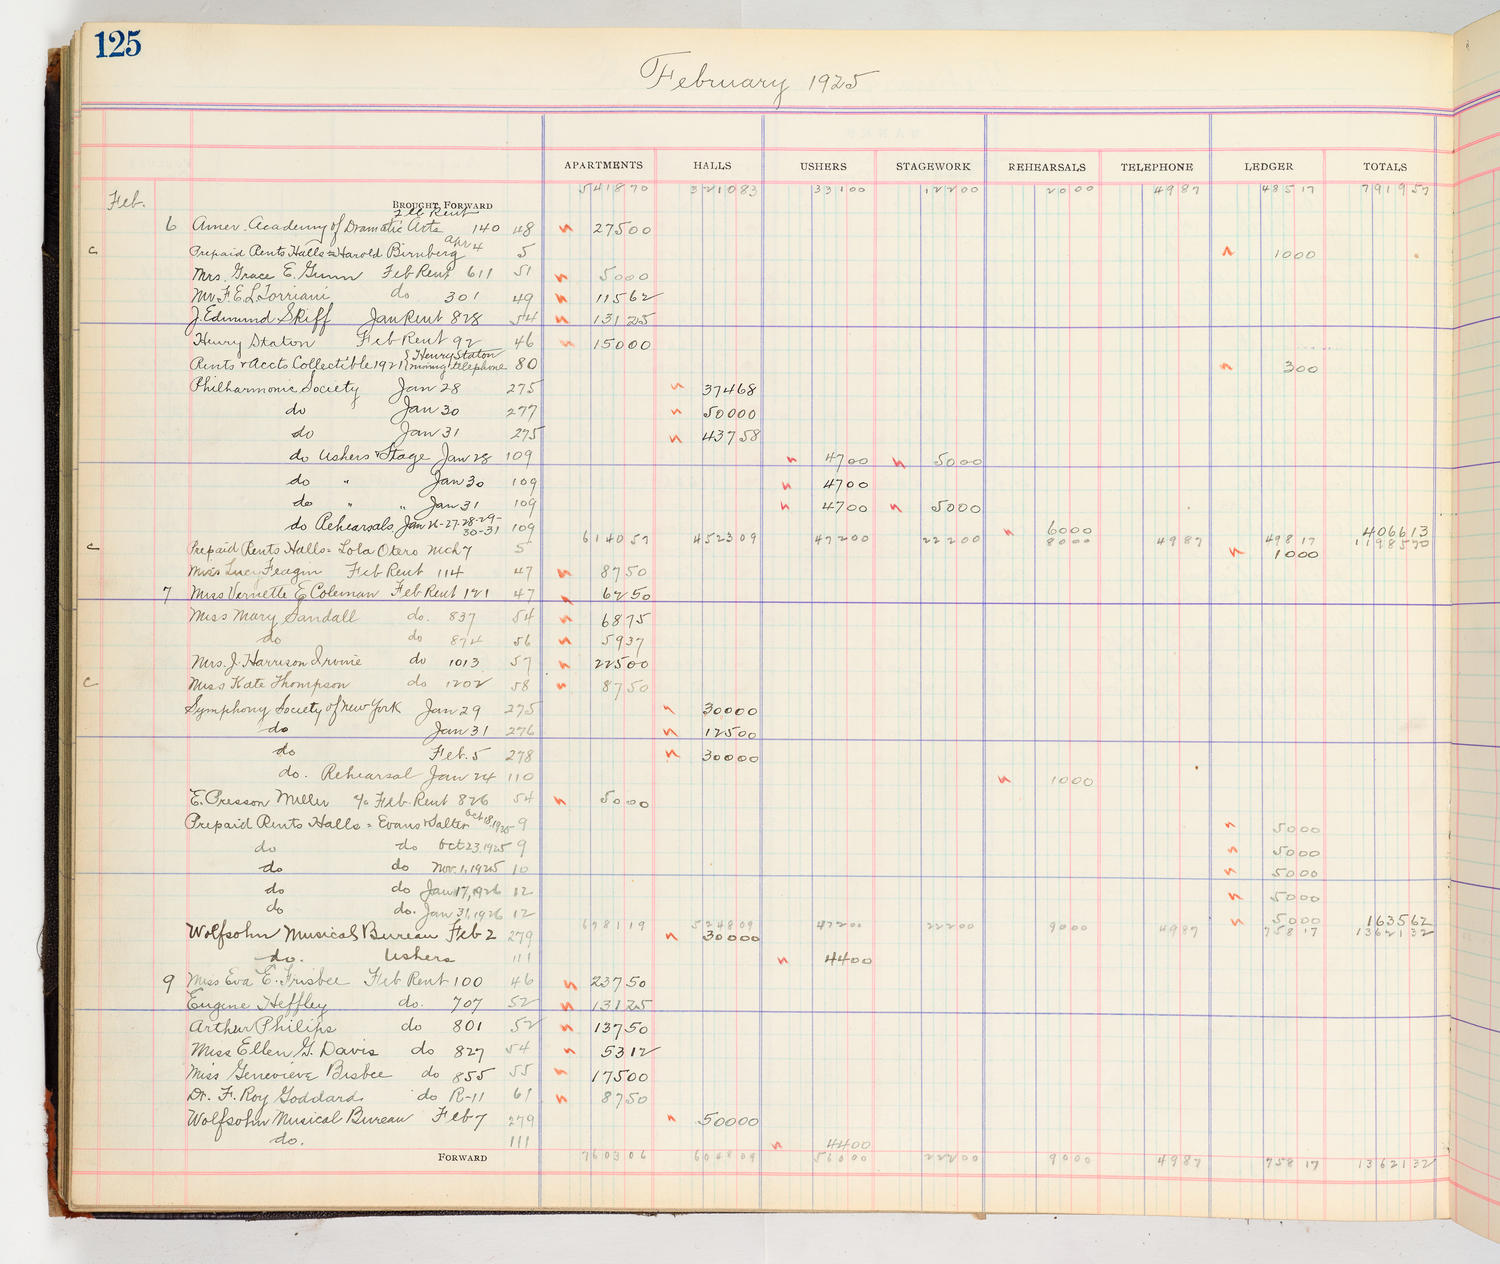 125
February 1925
APARTMENTS HALLS USHERS STAGEWORK REHEARSALS TELEPHONE LEDGER TOTALS
Feb. BROUGHT FORWARD 541870 321083 33100 12200 2000 4987 48517 791957
6 Amer. Academy of Dramatic Arts Feb Rent 140 48 27500
c Prepaid Rents Halls = Harold Birnberg Apr 4 5 1000
Mrs. Grace E. Gunn Feb Rent 611 51 5000
Mr F. E. L. Torriani do 301 49 11562
J. Edmund Skiff Jan Rent 828 54 13125
Henry Staton Feb Rent 92 46 15000
Rents & Accts Collectible 1921 { Henry Staton moving telephone 80 300
Philharmonic Society Jan 28 275 37468
do Jan 30 277 50000
do Jan 31 275 43758
do Ushers & Stage Jan 28 109 4700 5000
do " Jan 30 109 4700
do " " Jan 31 109 4700 5000
do Rehearsals Jan 26-27-28-29-30-31 109 6000 406613
614057 452309 47200 22200 8000 4987 49817 1198570
c Prepaid Rents Halls = Lola Otero Mch 7 5 1000
Miss Lucy Feagin Feb Rent 114 47 8750
7 Miss Vernette E Coleman Feb Rent 121 47 6250
Miss Mary Sandall do. 837 54 6875
do do 874 56 5937
Mrs. J. Harrison Irvine do 1013 57 22500
c Miss Kate Thompson do 1202 58 8750
Symphony Society of New York Jan 29 275 30000
do Jan 31 276 12500
do Feb. 5 278 30000
do. Rehearsal Jan 24 110 1000
E. Presson Miller % Feb. Rent 826 54 5000
Prepaid Rents Halls = Evans & Salter Oct 18, 1925 9 5000
do do Oct 23, 1925 9 5000
do do Nov. 1, 1925 10 5000
do do Jan 17, 1926 12 5000
do do. Jan 31, 1926 12 5000 163562
678119 524809 47200 22200 9000 4987 75817 1362132
Wolfsohn Musical Bureau Feb 2 279 30000
do. Ushers 111 4400
9 Miss Eva E. Frisbee Feb Rent 100 46 23750
Eugene Heffley do. 707 52 13125
Arthur Philips do 801 52 13750
Miss Ellen G. Davis do 827 54 5312
Miss Genevieve Bisbee do 855 55 17500
Dr. F. Roy Goddard do R-11 61 8750
Wolfsohn Musical Bureau Feb 7 279 50000
do. 111 4400
FORWARD 760306 604809 56000 22200 9000 4987 75817 1362132